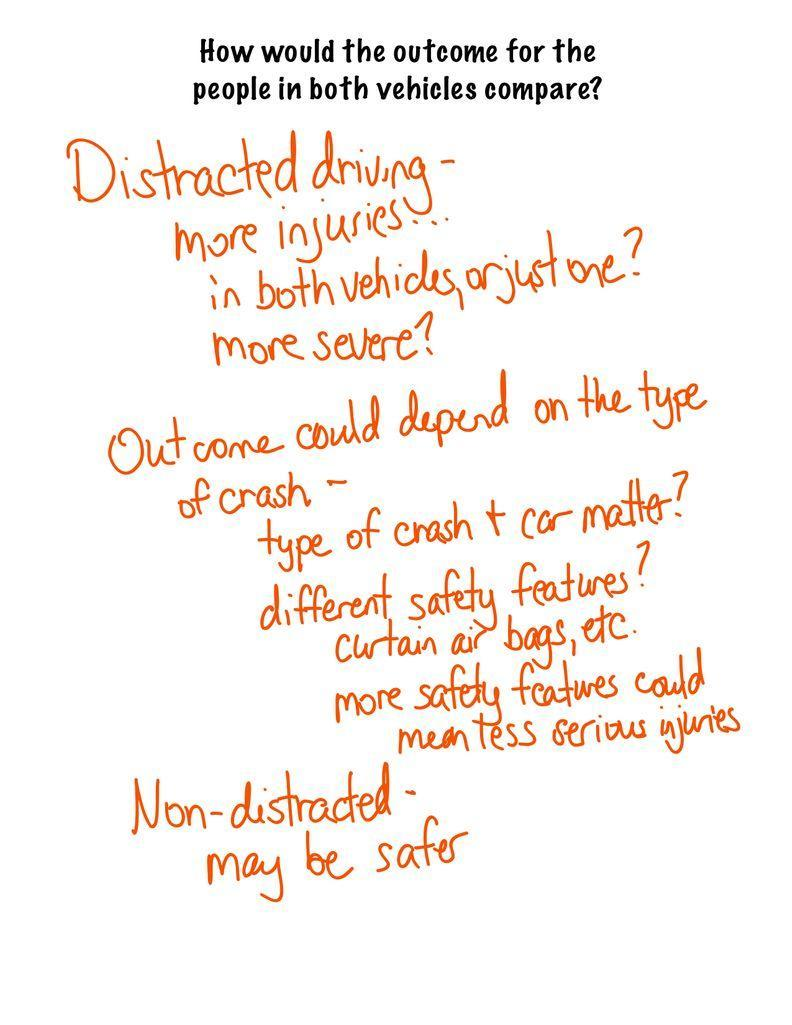 How would the outcome for the
people in both vehicles compare?
Distracted driving -
more injuries...
in both vehicles, or just one?
more severe?
Outcome could depend on the type
of crash -
type of crash + car matter?
different safety features?
curtain air bags, etc.
more safety features could
mean less serious injuries
Non-distracted -
may be safer